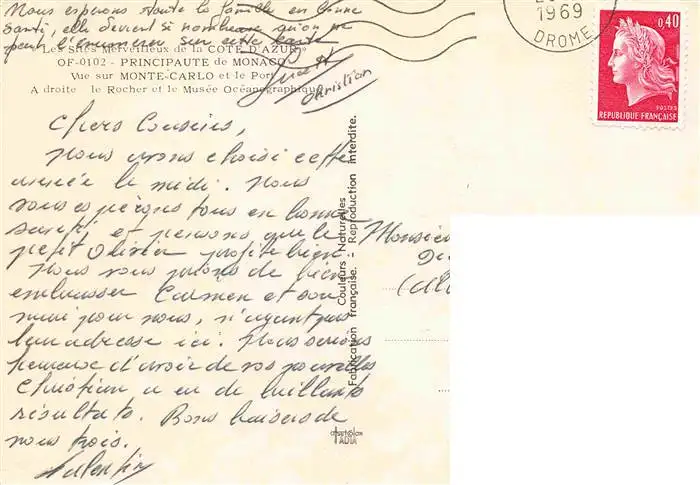 Nous espérons toute la famille en bonne
santé, elle devient si nombreuse qu'on ne
peut l'énumérer sur cette carte
Les Sites Merveilleux de la COTE D'AZUR
OF-0102 - PRINCIPAUTE de MONACO
Vue sur MONTE-CARLO et le Port
A droite le Rocher et le Musée Océanographique
Christian
Chers Cousins,
Nous avons choisi cette
année le midi. Nous
vous espérons tous en bonne
santé, et pensons que le
petit Olivier profite bien
Nous vous prions de bien
embrasser Carmen et son
mari pour nous, n'ayant pas
leur adresse ici. Nous serions
heureux d'avoir de vos nouvelles
Christian a eu de brillants
résultats. Bons baisers de
nous trois.
Valentin
Couleurs Naturelles
Fabrication française. - Reproduction interdite.
ADIA
1969
DROME
0,40
POSTES
REPUBLIQUE FRANÇAISE
Monsieur